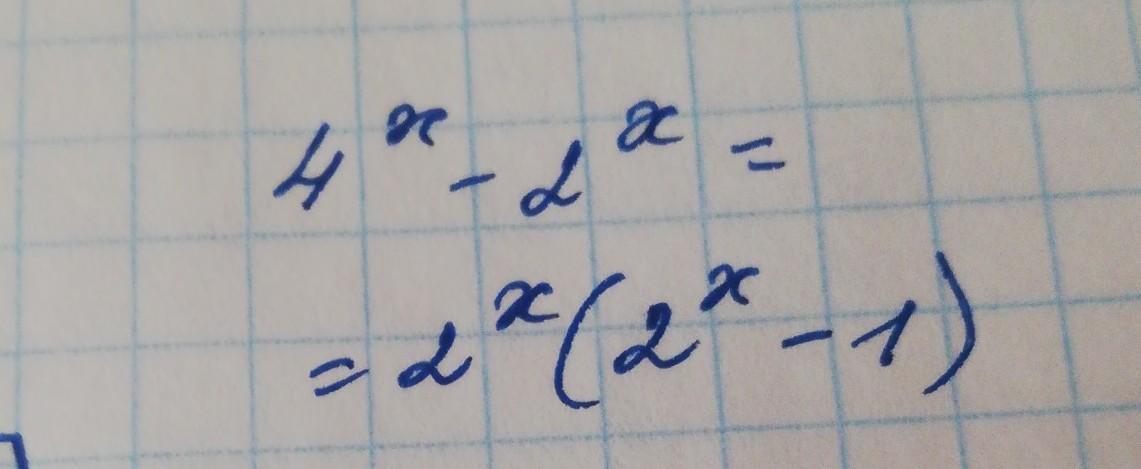 4^x - 2^x =
= 2^x (2^x - 1)